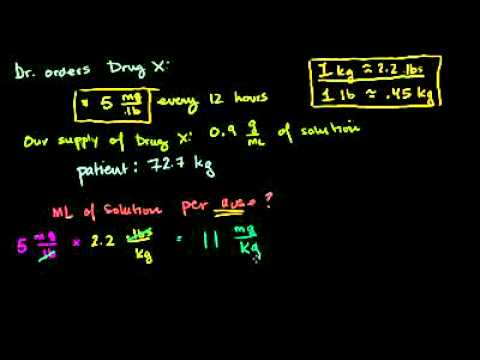 Dr. orders Drug X:
= 5 mg/lb every 12 hours
1 kg ≈ 2.2 lbs
1 lb ≈ .45 kg
Our supply of Drug X: 0.9 g/mL of solution
patient: 72.7 kg
ML of solution per dose?
5 mg/lb × 2.2 lbs/kg = 11 mg/kg